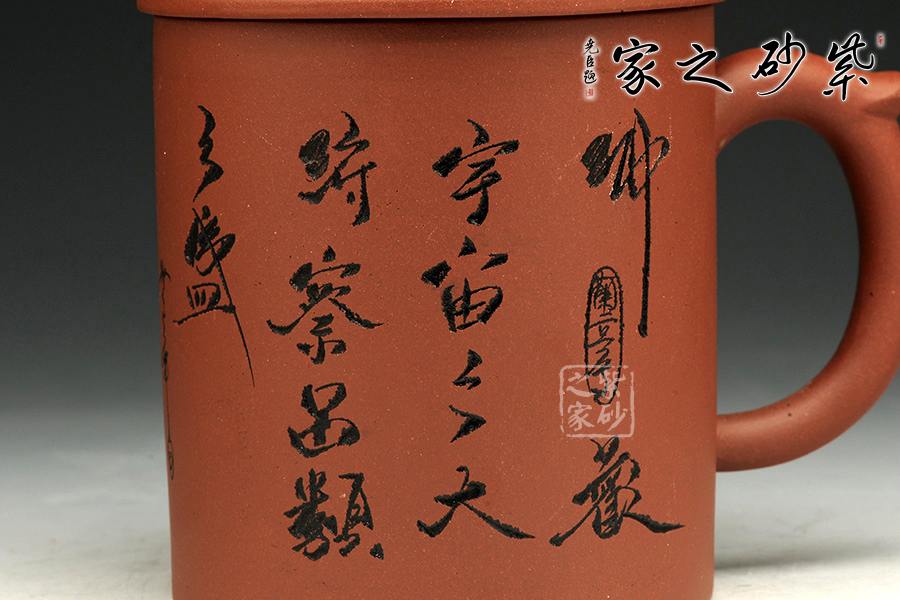 紫砂之家
堯臣題
仰觀
宇宙之大
俯察品類
之盛
紫砂之家